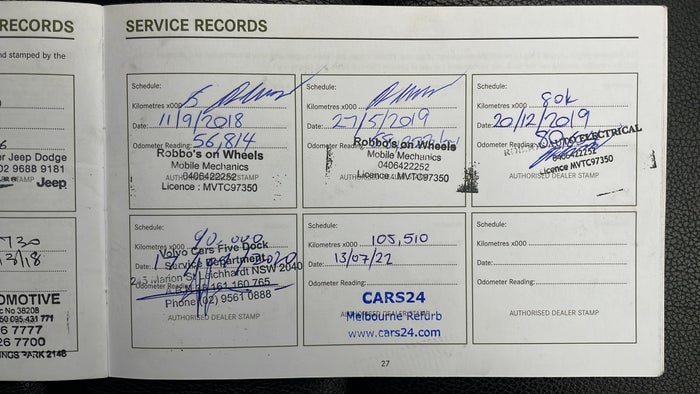 RECORDS
nd stamped by the
er Jeep Dodge
02 9688 9181
Jeep
OMOTIVE
c No 38208
6 7777
26 7700
NGS PARK 2148
SERVICE RECORDS
Schedule:
Kilometres x000
Date: 11/9/2018
Odometer Reading: 56,814
Robbo's on Wheels
Mobile Mechanics
0406422252
AUTHORISED DEALER STAMP
Licence : MVTC97350
Schedule:
Kilometres x000
Date: 27/5/2019
Odometer Reading:
Robbo's on Wheels
Mobile Mechanics
0406422252
AUTHORISED DEALER STAMP
Licence : MVTC97350
Schedule:
Kilometres x000 80k
Date: 20/12/2019
Odometer Reading:
AUTO ELECTRICAL
0406422252
Licence MVTC97350
AUTHORISED DEALER STAMP
Schedule:
Kilometres x000 90,000
Volvo Cars Five Dock
Date:
Service Department
Marion St Leichhardt NSW 2040
Odometer Reading
161 160 765
Phone (02) 9561 0888
AUTHORISED DEALER STAMP
Schedule:
Kilometres x000 105,510
Date: 13/07/22
Odometer Reading:
CARS24
AUTHORISED DEALER STAMP
Melbourne Refurb
www.cars24.com
Schedule:
Kilometres x000
Date:
Odometer Reading:
AUTHORISED DEALER STAMP
27